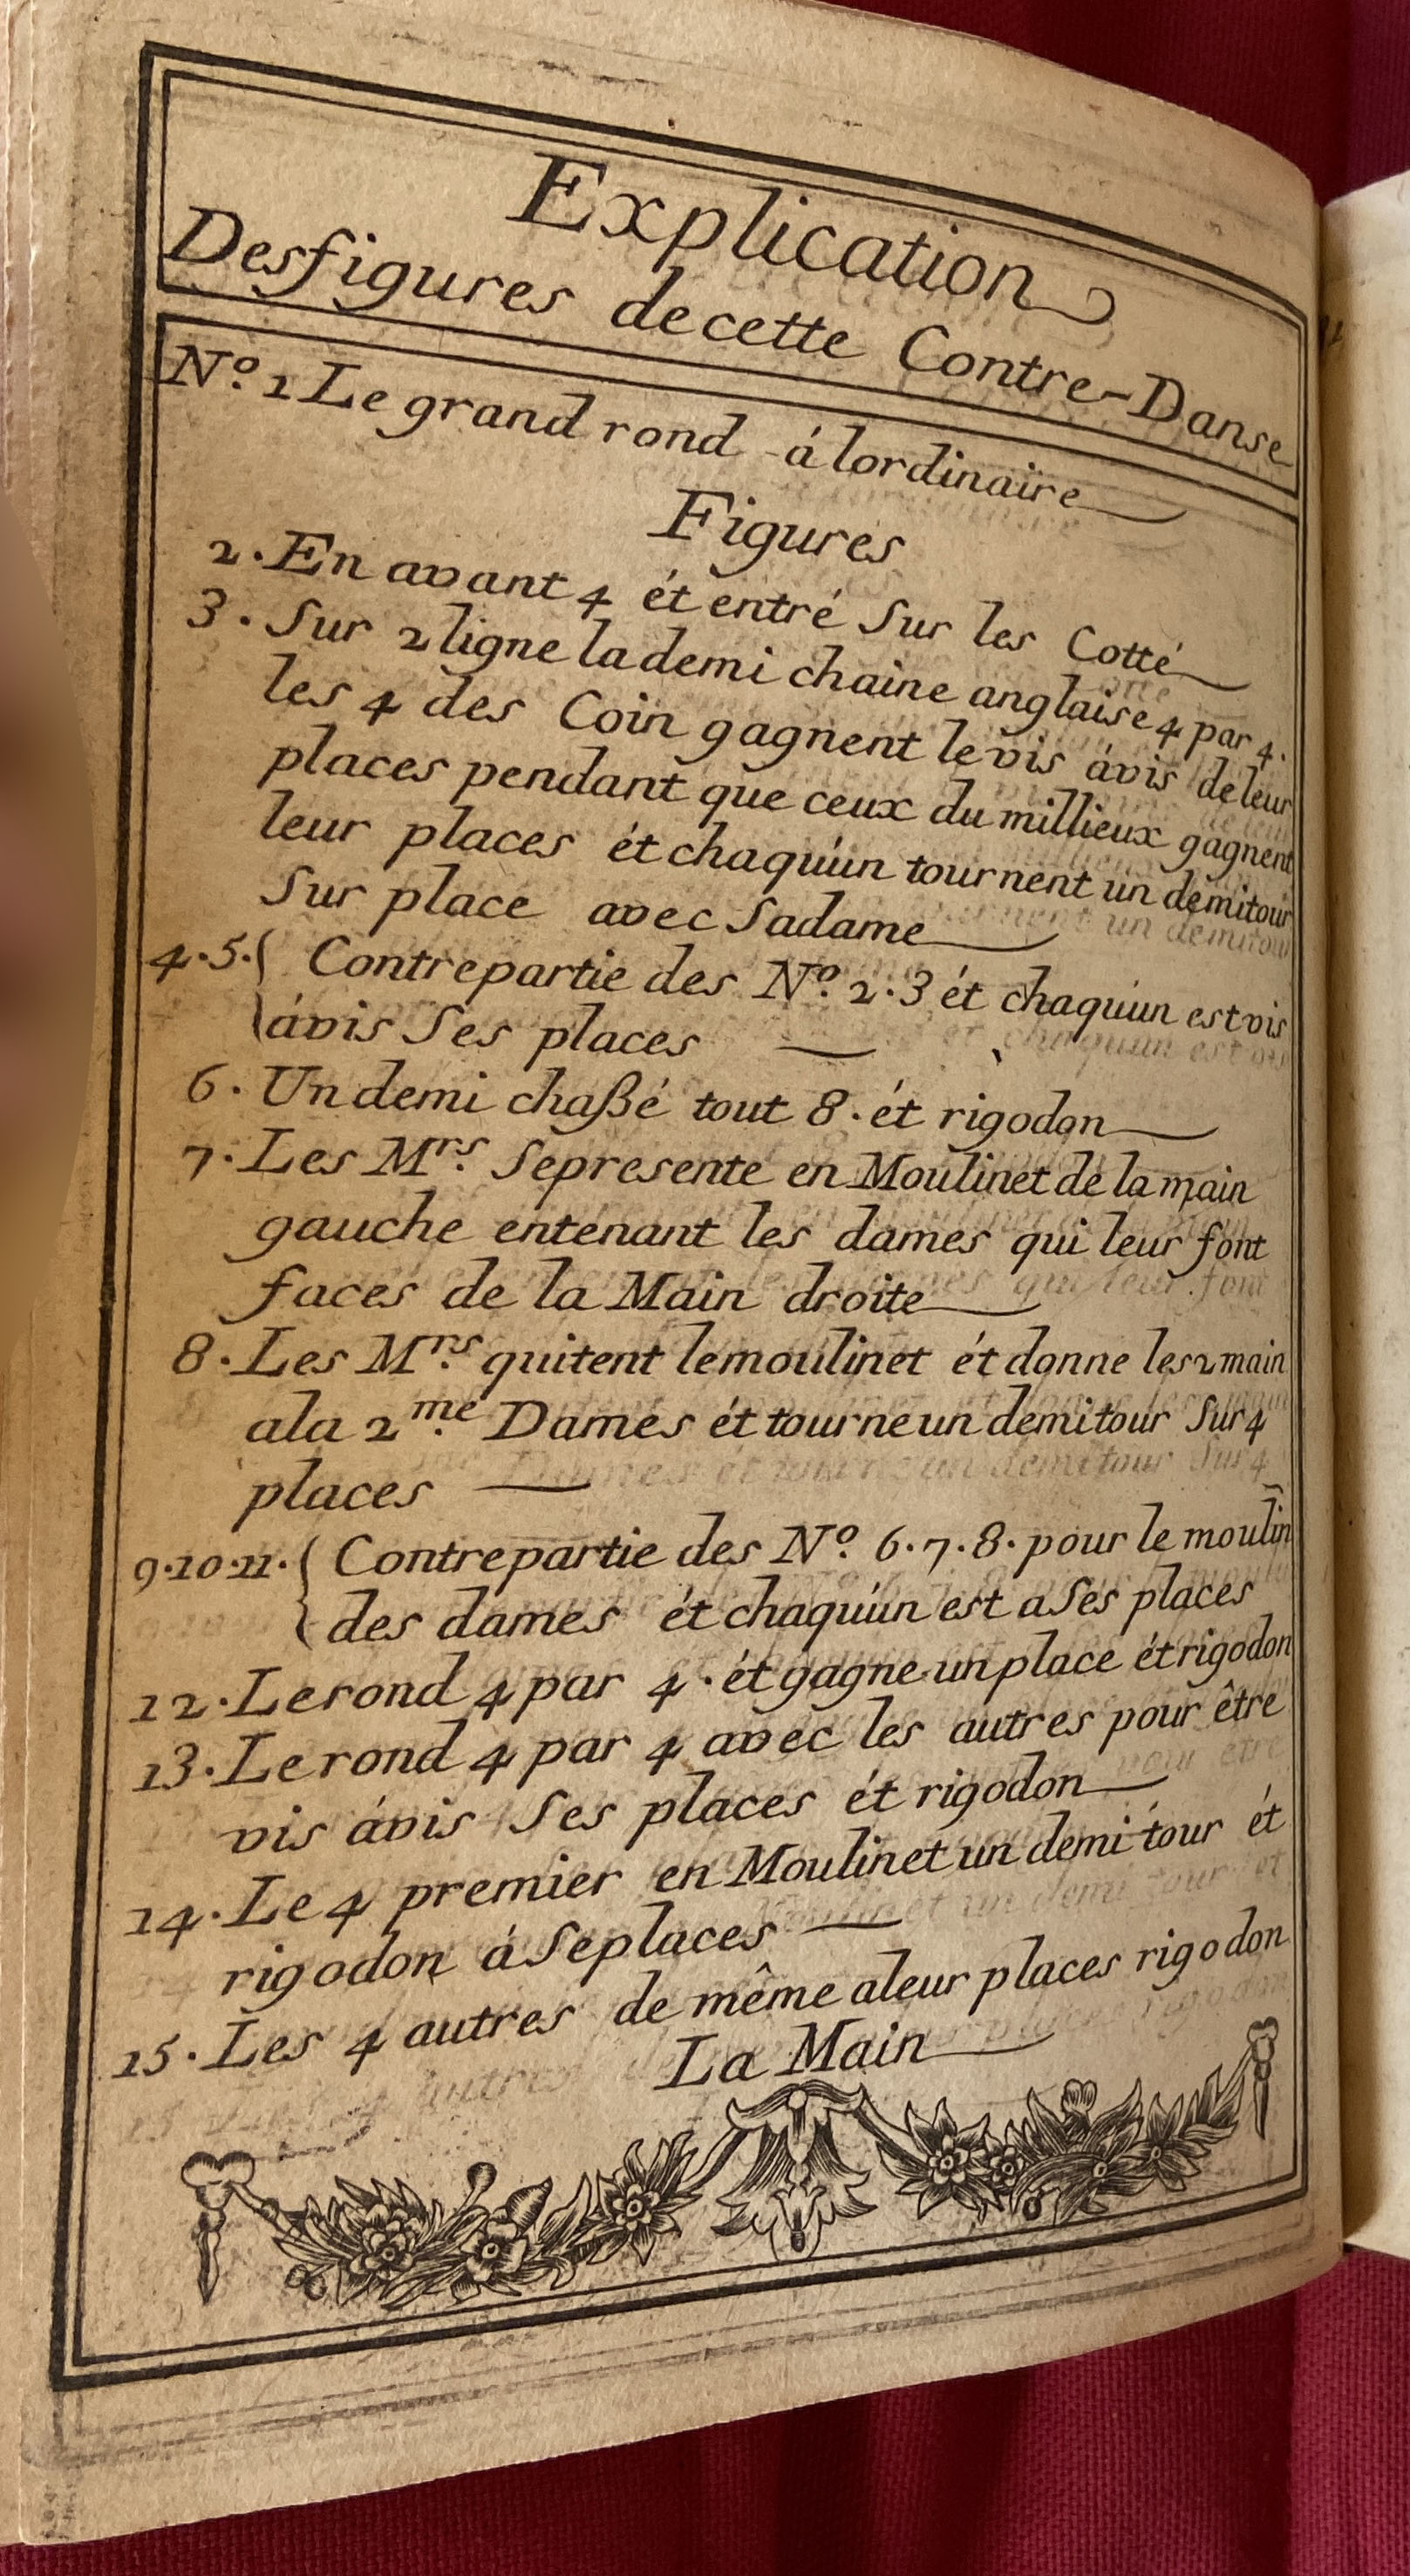 Explication
Des figures de cette Contre-Danse
N.º 1 Le grand rond á lordinaire
Figures
2. En avant 4 ét entré Sur les Cotté
3. Sur 2 ligne la demi chaine anglaise 4 par 4.
les 4 des Coin gagnent le vis ávis de leur
places pendant que ceux du millieux gagnent
leur places ét chaqúun tournent un demi tour
Sur place avec Sa dame
4.5. { Contrepartie des N.º 2.3 ét chaqúun est vis
ávis Ses places
6. Un demi chaßé tout 8. ét rigodon
7. Les M.rs Se presente en Moulinet de la main
gauche en tenant les dames qui leur font
faces de la Main droite
8. Les M.rs quitent le moulinet ét donne les 2 main
a la 2.me Dames ét tourne un demi tour Sur 4
places
9.10.11. { Contrepartie des N.º 6.7.8. pour le moulin̄
des dames ét chaqúun est a Ses places
12. Le rond 4 par 4. ét gagne un place ét rigodon
13. Le rond 4 par 4 avec les autres pour être
vis ávis Ses places ét rigodon
14. Le 4 premier en Moulinet un demi tour ét
rigodon á Se places
15. Les 4 autres de même a leur places rigodon
La Main